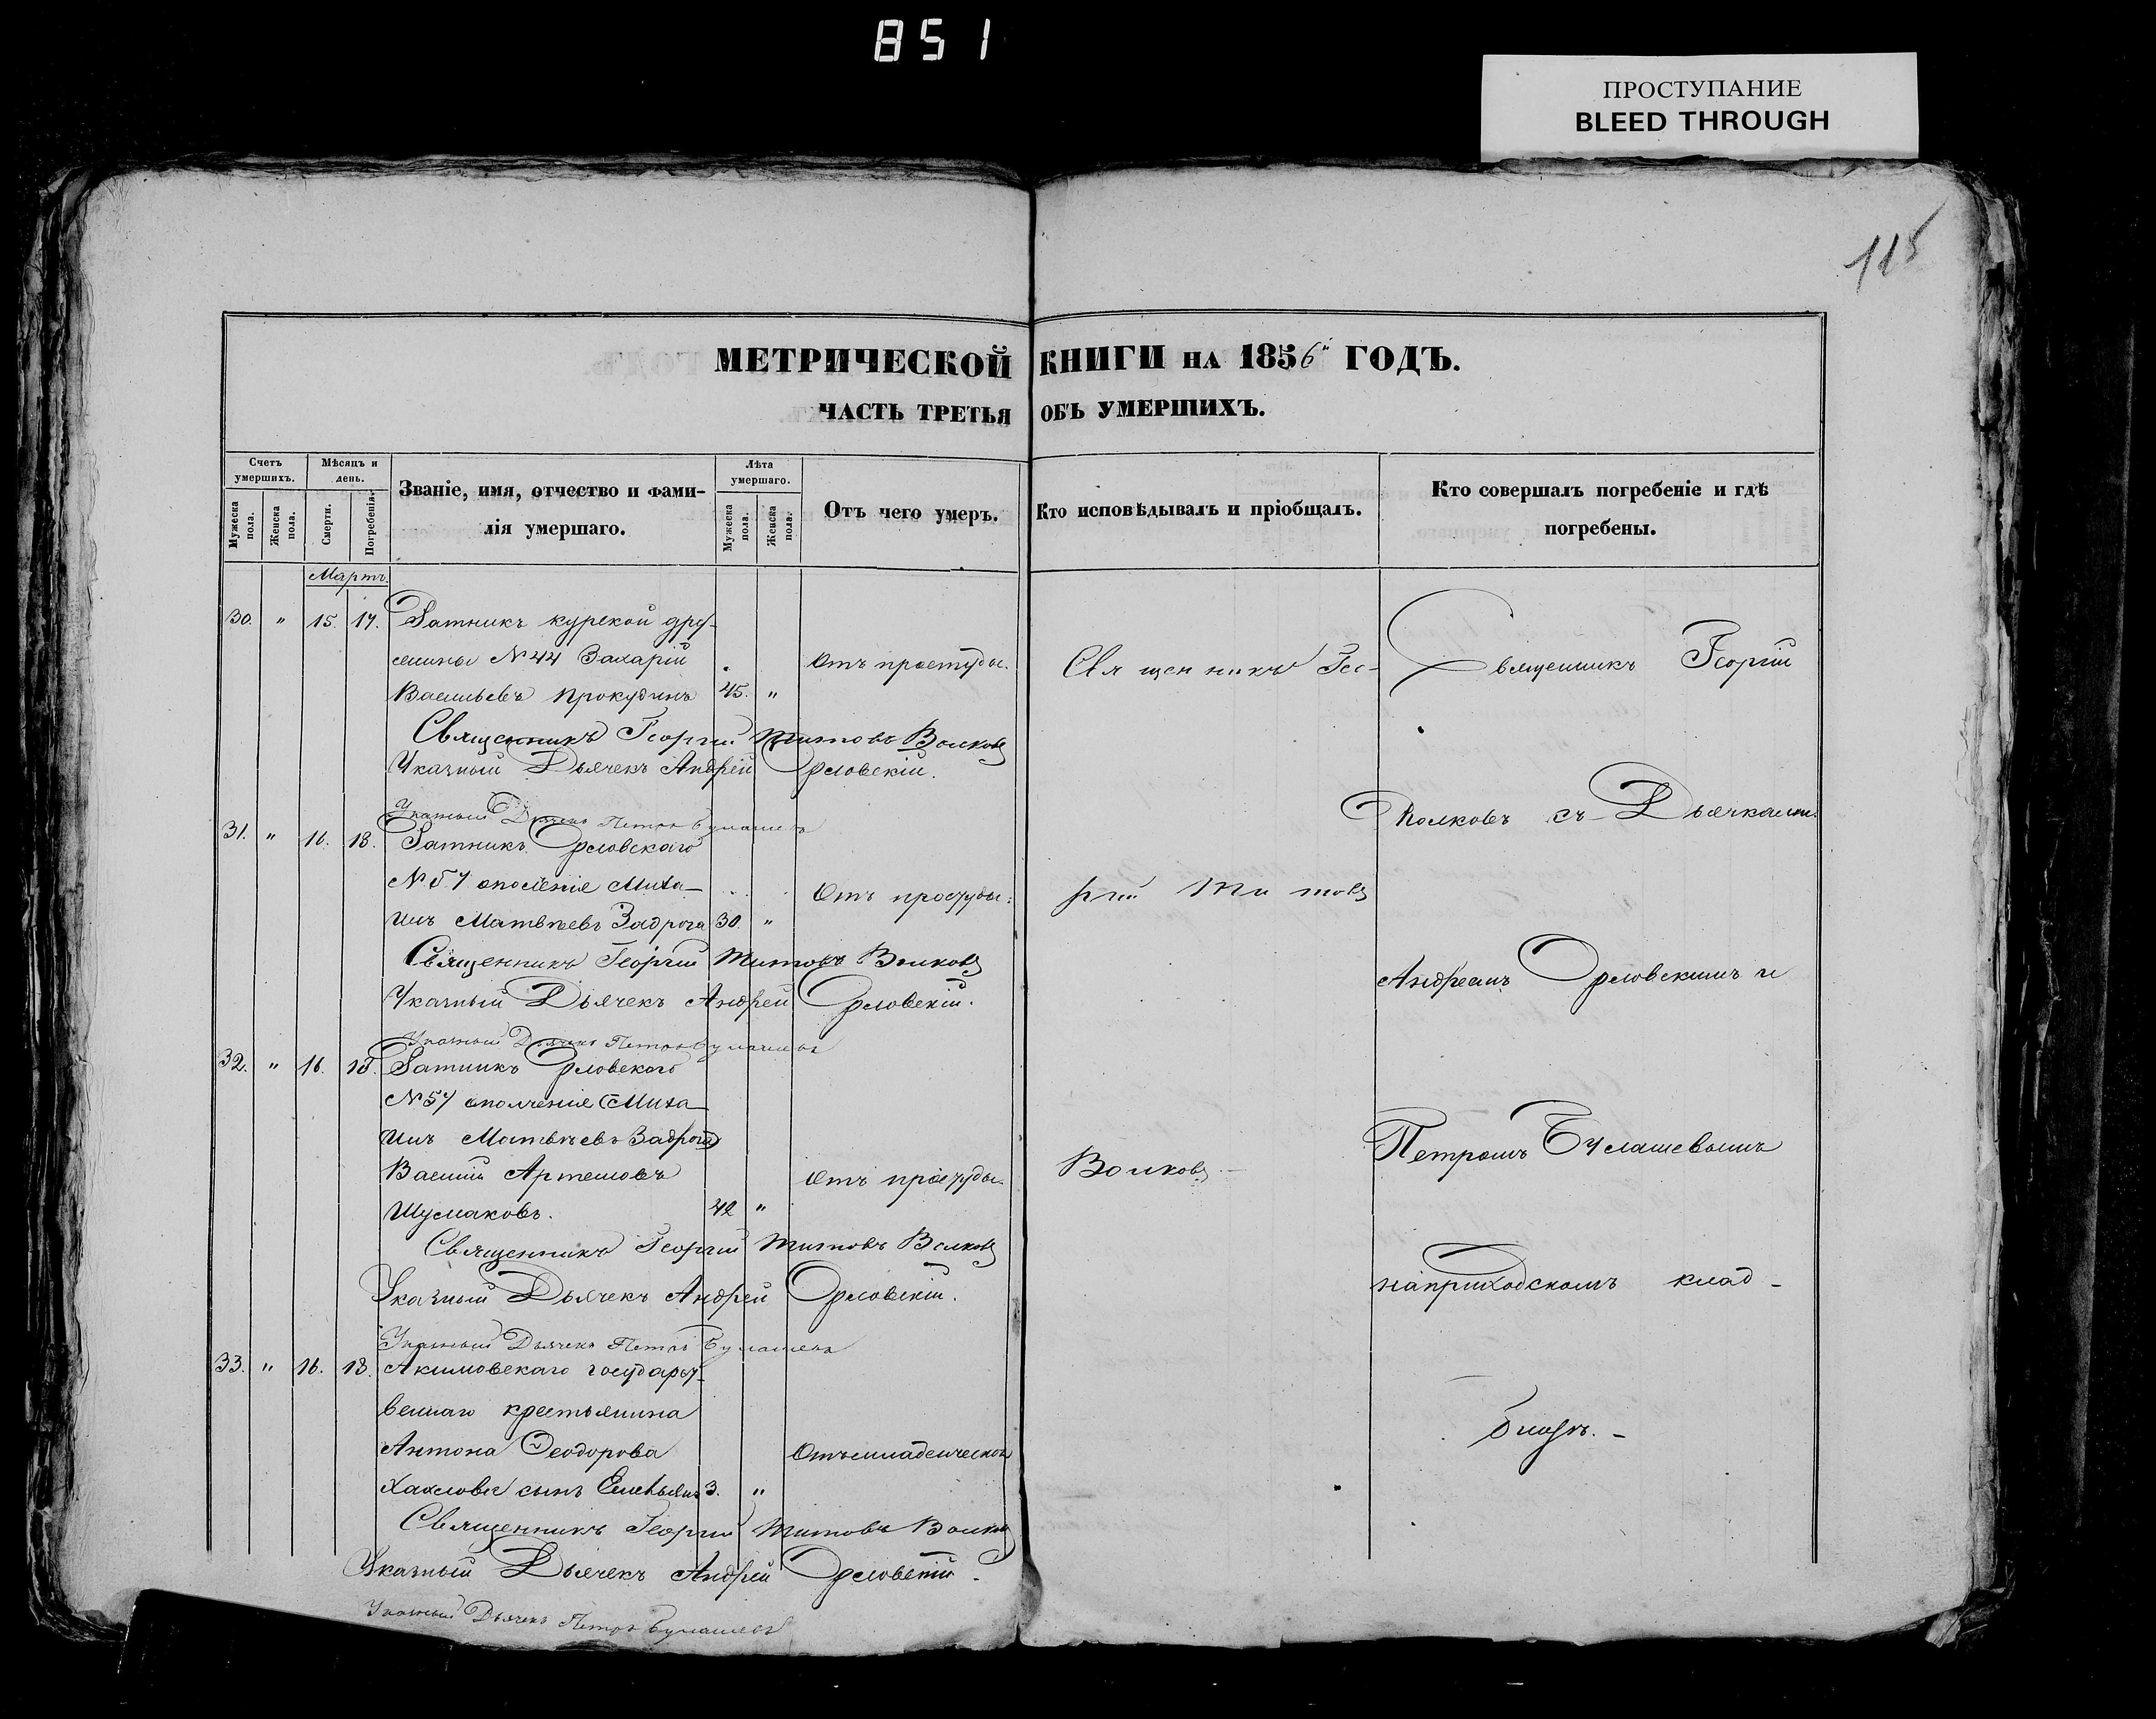 851
ПРОСТУПАНИЕ
BLEED THROUGH
115
МЕТРИЧЕСКОЙ КНИГИ НА 1856й ГОДЪ.
ЧАСТЬ ТРЕТЬЯ ОБЪ УМЕРШИХЪ.
Счетъ умершихъ.
Мужеска пола.
Женска пола.
Мѣсяцъ и день.
Смерти.
Погребенія.
Званіе, имя, отчество и фами-
лія умершаго.
Лѣта умершаго.
Мужеска пола.
Женска пола.
Отъ чего умеръ.
Кто исповѣдывалъ и пріобщалъ.
Кто совершалъ погребеніе и гдѣ
погребены.
Мартъ.
30. " 15. 17. Ратникъ курской дру-
жины №44 Захарій Отъ простуды.
Васильевъ Прокудинъ 45. "
Священникъ Георгій Титовъ Волковъ
Указный Дьячекъ Андрей Орловскій.
Указный Дьячекъ Петръ Булашевъ
31. " 16. 18. Ратникъ Орловскаго
№57 ополченія Миха- Отъ простуды.
илъ Матвѣевъ Задрога 30. "
Священникъ Георгій Титовъ Волковъ
Указный Дьячекъ Андрей Орловскій.
Указный Дьячекъ Петръ Булашевъ
32. " 16. 18. Ратникъ Орловского
№57 ополченія (Миха-
илъ Матвѣевъ Задрога)
Василій Артемовъ Отъ простуды.
Шумаковъ. 42 "
Священникъ Георгій Титовъ Волковъ
Указный Дьячекъ Андрей Орловскій.
Указный Дьячекъ Петръ Булашевъ
33. " 16. 18. Акимовскаго государст-
веннаго крестьянина
Антона Ѳеодорова Отъ младенческой
Хахлова сынъ Емельянъ 3. "
Священникъ Георгій Титовъ Волковъ
Указный Дьячекъ Андрей Орловскій.
Указный Дьячекъ Петръ Булашевъ
Священникъ Гео-
ргій Титовъ
Волковъ.
Священникъ Георгій
Волковъ съ Дьячками
Андреемъ Орловскимъ и
Петромъ Булашевымъ
на приходскомъ клад-
бищѣ.